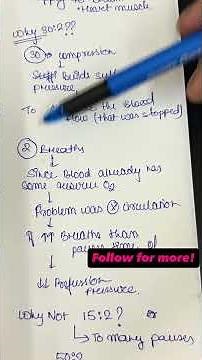 → Heart muscle
Why 30:2??
30 compression
→ builds
pressure
To the Blood
flow (that was stopped)
2 Breaths
Since Blood already has
some O2
Problem was circulation
↑ ↑↑ Breaths than
Follow for more!
↓↓ Perfusion
pressure
Why Not 15:2?
→ To many pauses
50:2